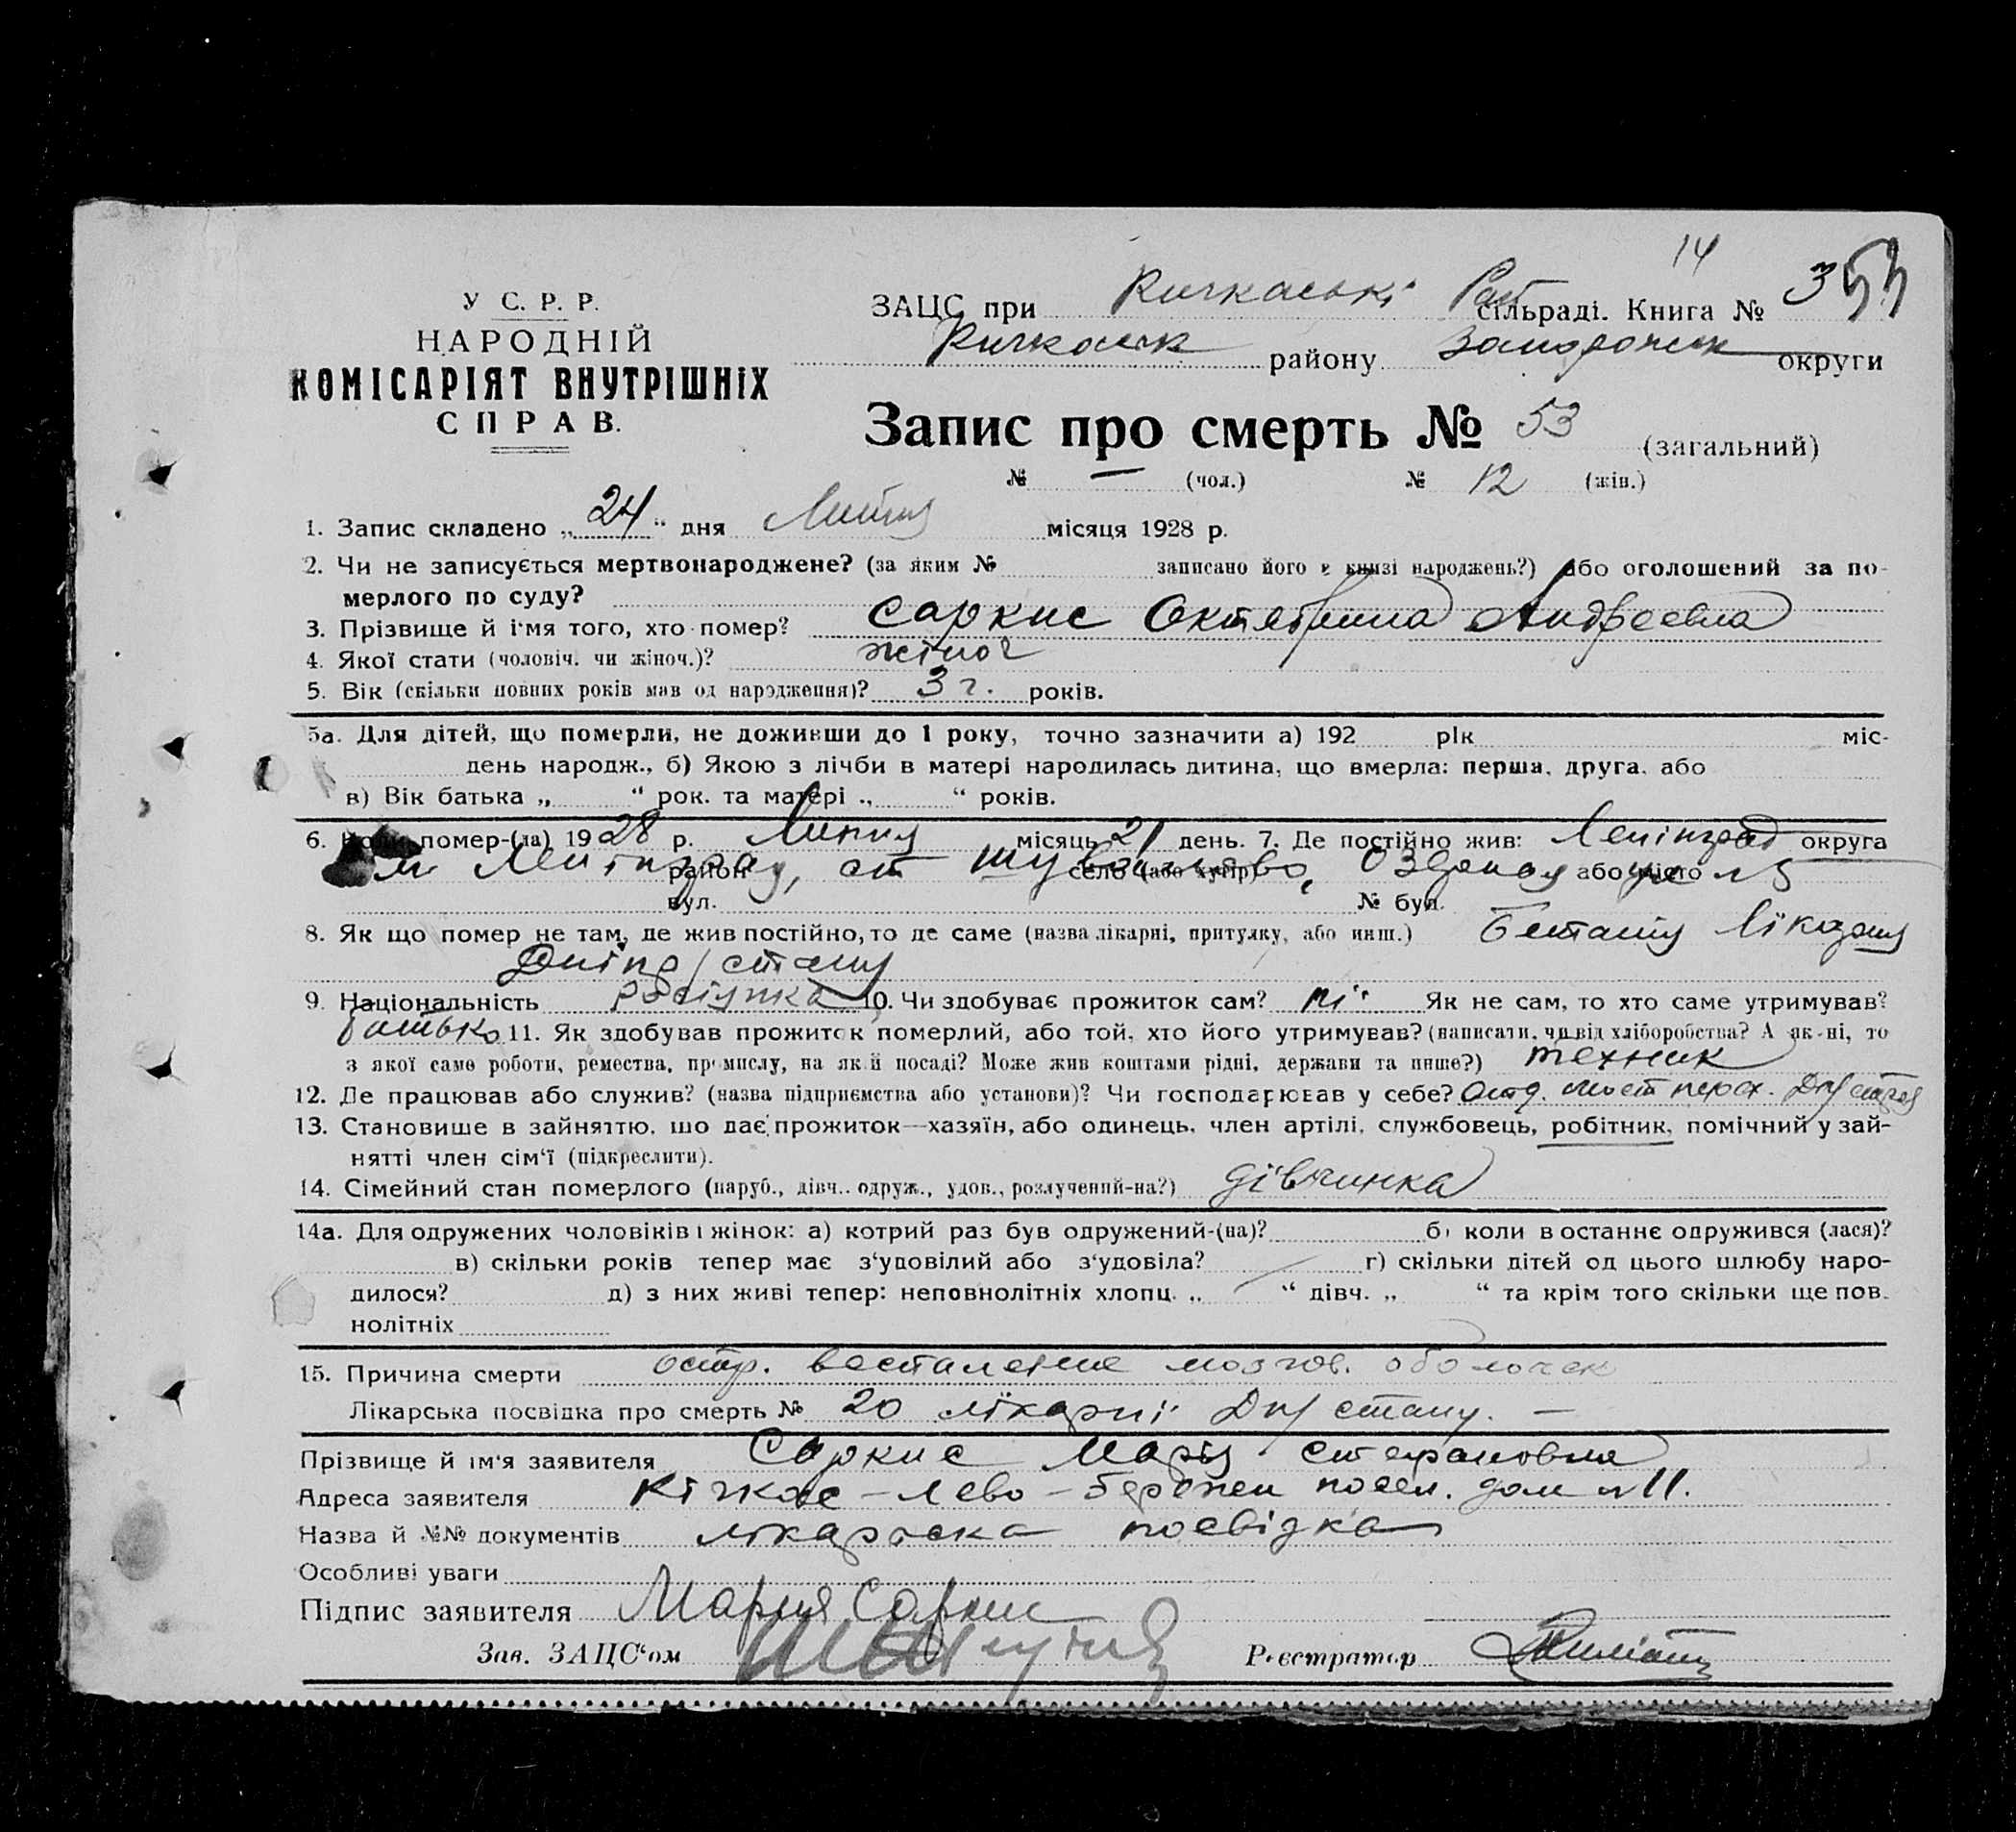 14
У С. Р. Р.
НАРОДНІЙ
КОМІСАРІЯТ ВНУТРІШНІХ
СПРАВ.
ЗАЦС при Кичкаські Рай сільраді. Книга № 353
Кичкаськ району Запорожск округи
Запис про смерть № 53 (загальний)
№ — (чол.) № 12 (жін.)
1. Запис складено „24“ дня Липня місяця 1928 р.
2. Чи не записується мертвонароджене? (за яким № записано його в книзі народжень?) або оголошений за по-
мерлого по суду?
3. Прізвище й ім'я того, хто помер? Саркис Октябрина Андреевна
4. Якої стати (чоловіч. чи жіноч.)? жіноч
5. Вік (скільки повних років мав од народження)? 3 г. років.
5а. Для дітей, що померли, не доживши до 1 року, точно зазначити а) 192 рік міс-
день народж., б) Якою з лічби в матері народилась дитина, що вмерла: перша, друга, або
в) Вік батька „ “ рок. та матері „ “ років.
6. Коли помер-(ла) 1928 р. Липня місяць 21 день. 7. Де постійно жив: Лениінград округа
м. Ленінград, ст район село (або хутір) Озерная або місто № 5
вул. № буд.
8. Як що помер не там, де жив постійно, то де саме (назва лікарні, притулку, або инш.) лікарня
9. Національність 10. Чи здобуває прожиток сам? ні Як не сам, то хто саме утримував?
батько 11. Як здобував прожиток померлий, або той, хто його утримував? (написати, чи від хліборобства? А як-ні, то
з якої саме роботи, ремества, промислу, на якій посаді? Може жив коштами рідні, держави та инше?) техник
12. Де працював або служив? (назва підприємства або установи)? Чи господарював у себе? отд. мост перех.
13. Становише в зайняттю, що дає прожиток—хазяїн, або одинець, член артілі, службовець, робітник, помічний у зай-
нятті член сім'ї (підкреслити).
14. Сімейний стан померлого (паруб., дівч.. одруж., удов., розлучений-на?) дівчинка
14а. Для одружених чоловіків і жінок: а) котрий раз був одружений-(на)? б) коли в останнє одружився (лася)?
в) скільки років тепер має з'удовілий або з'удовіла? г) скільки дітей од цього шлюбу наро-
дилося? д) з них живі тепер: неповнолітніх хлопц. „ “ дівч. „ “ та крім того скільки ще пов-
нолітніх
15. Причина смерти остр. воспаление мозгов. оболочек
Лікарська посвідка про смерть № 20 лікарні Дн/стану. —
Прізвище й ім'я заявителя Саркис Марія Степановна
Адреса заявителя Кічкас – Лево – бережн посел. дом №11.
Назва й №№ документів лікарьска посвідка
Особливі уваги
Підпис заявителя Мария Саркис
Зав. ЗАЦС'ом
Реєстратор